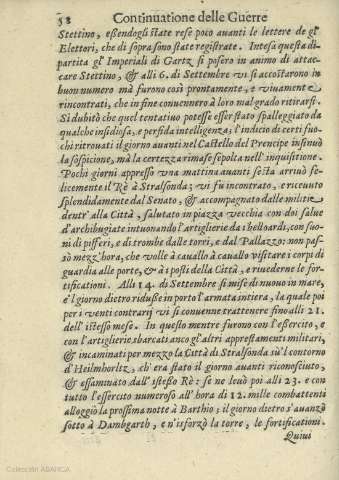 58 Continuatione delle Guerre
Stettino, essendogli state rese poco auanti le lettere de gl'
Elettori, che di sopra sono state registrate. Intesa questa di-
partita gl'Imperiali di Gartz si posero in animo di attac-
care Stettino, & alli 6. di Settembre vi si accostarono in
buon numero mà furono così prontamente, e viuamente
rincontrati, che in fine conuennero à loro mal grado ritirarsi.
Si dubitò che quel tentatiuo potesse esser stato spalleggiato da
qualche insidiosa, e perfida intelligenza; l'indicio di certi fuo-
chi ritrouati il giorno auanti nel Castello del Prencipe insinuò
la sospicione, mà la certezza rimase sepolta nell'inquisitione.
Pochi giorni appresso vna mattina auanti sesta arriuò fe-
licemente il Rè à Stralsonda; vi fu incontrato, e riceuuto
splendidamente dal Senato, & accompagnato dalle militie
dentr'alla Città, salutato in piazza vecchia con doi salue
d'archibugiate intuonando l'artiglierie da i belloardi, con suo-
ni di pifferi, e di trombe dalle torri, e dal Pallazzo: non pas-
sò mezz'hora, che volle à cauallo à cauallo visitare i corpi di
guardia alle porte, & à i posti della Città, e riuederne le for-
tificationi. Alli 14. di Settembre si mise di nuouo in mare,
e'l giorno dietro ridusse in porto l'armata intiera, la quale poi
per i venti contrarij vi si conuenne trattenere fino alli 21.
dell'istesso mese. In questo mentre furono con l'essercito, e
con l'artiglierie sbarcati anco gl'altri apprestamenti militari,
& incaminati per mezzo la Città di Stralsonda sù'l contorno
d'Heilmhorltz, ch'era stato il giorno auanti riconosciuto,
& essaminato dall'istesso Rè: se ne leuò poi alli 23. e con
tutto l'essercito numeroso all'hora di 12. mille combattenti
alloggiò la prossima notte à Barthio; il giorno dietro s'auanzò
sotto à Dambgarth, e n'isforzò la torre, le fortificationi.
Quiui
Colección ABANCA